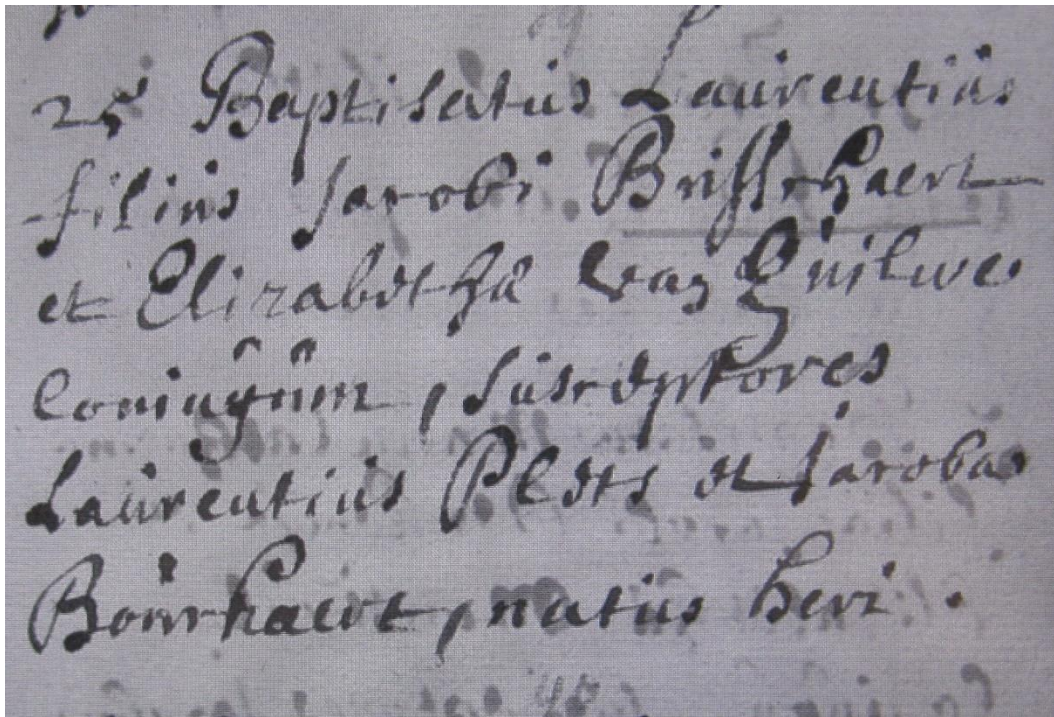 25 Baptisatus Laurentius
filius Jacobi Brisschaert
et Elizabetha Van Quilwe.
Coniugum, Susceptores
Laurentius Plets et Jacoba
Bouchaert, natus heri.